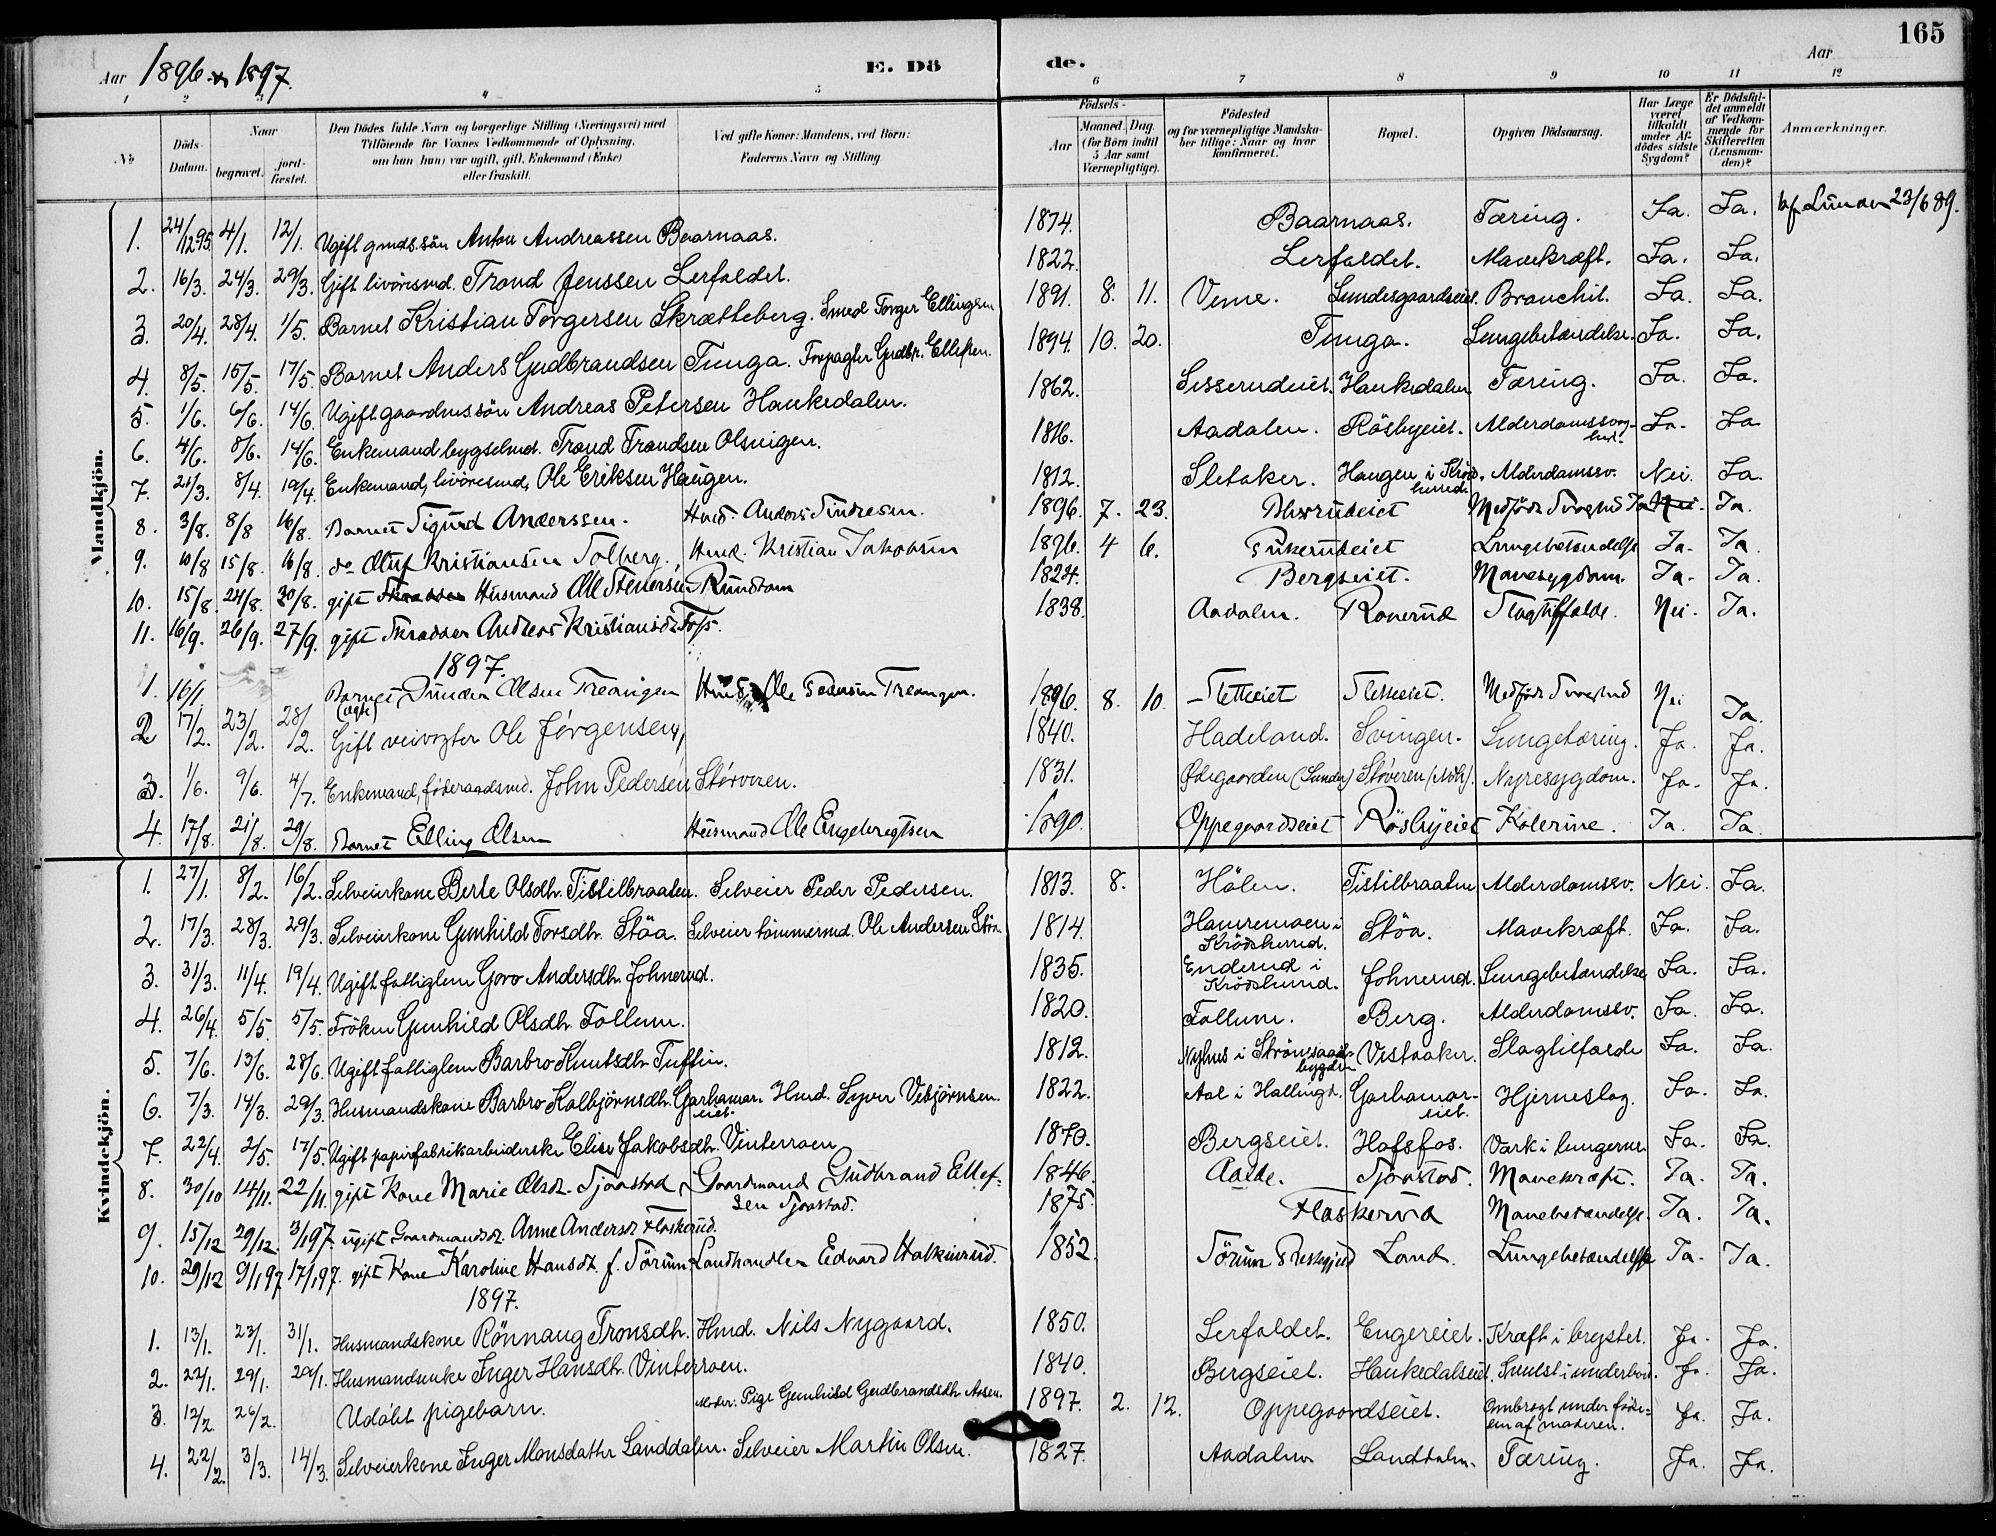 165
Aar 1896 & 1897.
E. Döde.
Aar
1 2 3 4 5 6 7 8 9 10 11 12
No
Döds-Datum.
Naar begravet. jordfæstet.
Den Dödes fulde Navn og borgerlige Stilling (Næringsvei) med Tilföiende for Voxnes Vedkommende af Oplysning, om han (hun) var ugift, gift, Enkemand (Enke) eller fraskilt.
Ved gifte Koner: Mandens, ved Börn: Faderens Navn og Stilling.
Födsels-
Aar
Maaned. Dag. (for Börn indtil 5 Aar samt Værnepligtige).
Födested og for værnepligtige Mandskaber tillige: Naar og hvor konfirmeret.
Bopæl.
Opgiven Dödsaarsag.
Har Læge været tilkaldt under Afdödes sidste Sygdom?
Er Dödsfaldet anmeldt af Vedkommende for Skifteretten (Lensmanden)?
Anmærkninger.
Mandkjön.
1. 24/12 95 4/1. 12/1. Ugift gmds. sön Anton Andreassen Baarnaas. 1874. Baarnaas. Tæring. Ja. Ja. 23/6 89.
2. 16/3. 24/3. 29/3. Gift livöresmd. Trond Jenssen Lerfaldet. 1822. Lerfaldet. Mavekræft. Ja. Ja.
3. 20/4. 28/4. 1/5. Barnet Kristian Torgersen Skrætteberg. Smed Torger Ellingsen 1891. 8. 11. Veme. Lundesgaardseiet. Bronchit. Ja. Ja.
4. 8/5. 15/5. 17/5. Barnet Anders Gudbrandsen Tunga. Forpagter Gudbr. Ellefsen. 1894. 10. 20. Tunga. Lungebetændelse. Ja. Ja.
5. 1/6. 6/6. 14/6. Ugift gaardmssön Andreas Petersen Haukedalen. 1862. Lisserudeiet. Haukedalen Tæring. Ja. Ja.
6. 4/6. 8/6. 14/6. Enkemand bygselmd. Trond Trondsen Olsneigen. 1816. Aadalen. Rösbyeiet. Alderdomssvaghed. Ja. Ja
7. 21/3. 8/4. 19/4. Enkemand, livöresmd, Ole Eriksen Haugen. 1812. Sletaker. Haugen i Krödsherred. Alderdomssv. Nei. Ja.
8. 3/8. 8/8 16/8. Barnet Sigurd Anderssen. Hmd. Anders Sindresen. 1896. 7. 23. Medfödt Svaghed Ja Nei. Ja.
9. 10/8 15/8. 16/8. do Oluf Kristiansen Solberg. Hmd. Kristian Jakobsen 1896. 4 6. Lungebetændelse Ja. Ja.
10. 15/8. 24/8. 30/8. gift Skrædder Husmand Ole Stenersen Rundtom 1824. Bergseiet. Mavesygdom. Ja. Ja.
11. 16/9. 26/9. 27/9. gift Skrædder Anders Kristiansen Fos. 1838. Aadalen. Ronerud Slagtilfælde. Nei. Ja.
1897.
1. 16/1. Barnet (ægte) Gunder Olsen Treangen Hmd. Ole Pedersen Treangen. 1896. 8. 10. Sletteiet Sletteeiet. Medfödt Svaghed Nei Ja.
2. 17/2. 23/2. 28/2. Gift veivogter Ole Jörgensen, 1840. Hadeland. Svingen. Lungetæring. Ja. Ja.
3. 1/6. 9/6. 4/7. Enkemand, föderaadsmd. John Pedersen Störveren. 1831. Ødegaarden (Lunder) Stöveren Nyresygdom. Ja. Ja.
4. 17/8. 21/8. 29/8. Barnet Elling Olsen Husmand Ole Engebregtsen 1890. Oppegaardseiet Rösbyeiet Kolerine. Ja. Ja
Kvindekjön.
1. 27/1. 8/2. 16/2. Selveierkone Berte Olsdtr. Tistilbraaten. Selveier Peder Pedersen. 1813. 8. Hölen. Tistilbraaten Alderdomssv. Nei. Ja.
2. 17/3. 28/3. 29/3. Selveierkone Gunhild Torsdtr. Stöa. Selveier tömmermd. Ole Andersen Stöa. 1814. Hamremoen i Krödsherred. Stöa. Mavekræft. Ja. Ja.
3. 31/3. 11/4. 19/4. Ugift fattiglem Goro Andersdtr. Johnerud. 1835. Enderud i Krödsherred. Johnerud. Lungebetændelse Ja. Ja.
4. 26/4. 5/5. 5/5. Fröken Gunhild Olsdtr. Follum. 1820. Follum. Berg. Alderdomssv. Ja. Ja.
5. 7/6. 13/6. 28/6. Ugift fattiglem Barbro Knutsdtr. Tuftin. 1812. Nyhus i Strömsaadbygden Vestaaker. Slagtilfælde Ja. Ja.
6. 7/3. 14/3. 29/3. Husmandskone Barbro Kolbjörnsdtr. Garhamareiet. Hmd. Syver Vebjörnsen. 1822. Aal i Hallingd. Garhamareiet. Hjerneslag. Ja. Ja.
7. 22/4. 2/5. 17/5. Ugift papirfabrikarbeiderske Elise Jakobsdtr. Vinterroen 1870. Bergseiet. Hofsfos. Værk i lungerne. Ja. Ja.
8. 30/10 14/11. 22/11. gift Kone Marie Olsdt. Tjorstad. Gaardmand Gudbrand Ellefsen Tjorstad. 1846. Aalde. Tjorstad. Mavekræft. Ja. Ja.
9. 15/12 29/12. 3/1 97. ugift Gaardmandsdt. Anne Andersdt Flaskerud. 1875. Flaskerud Mavebetændelse. Ja. Ja.
10. 29/12 9/1 97 17/1 97. gift Kone Karoline Hansdt. f. Törum. Landhandler Edvard Halkinrud. 1852. Land. Lungebetændelse Ja. Ja.
1897.
1. 13/1. 23/1. 31/1. Husmandskone Rönnaug Tronsdtr. Hmd. Nils Nygaard. 1850. Lerfaldet. Engereiet. Kræft i brystet. Ja. Ja.
2. 22/1. 29/1. 29/1. Husmandsenke Inger Hansdtr. Vinterroen. 1840. Bergseiet. Haukedalseiet. Svulst i underlivet. Ja. Ja.
3. 12/2. 26/2. Udöbt pigebarn. Moder: Pige Gunhild Gudbrandsdtr. Aasen. 1897. 2. 12. Oppegaardseiet. Ombragt under födselen af moderen. Ja. Ja.
4. 22/2. 3/3. 14/3. Selveierkone Inger Monsdatter Landdalen. Selveier Martin Olsen. 1827. Aadalen Landdalen. Tæring. Ja. Ja.